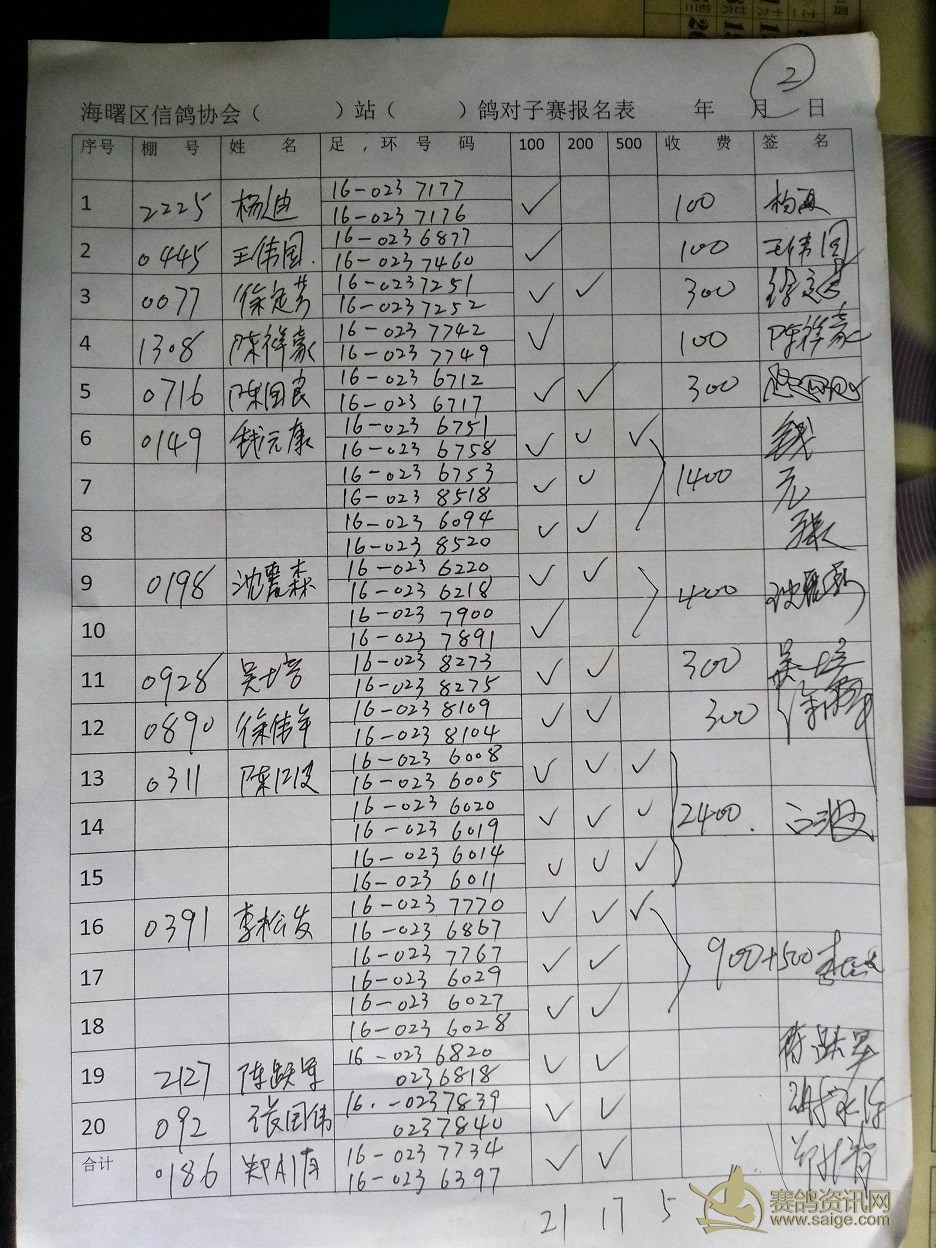 2
海曙区信鸽协会（ ）站（ ）鸽对子赛报名表 年 月 日
序号 棚号 姓名 足，环号码 100 200 500 收费 签名
1 2225 杨迪 16-023 7177 ✓ 100
16-023 7176
2 0445 王伟国. 16-023 6877 ✓ 100 王伟国
16-023 7460
3 0077 徐定芳 16-0237251 ✓ ✓ 300
16-0237252
4 1308 陈祥豪 16-023 7742 ✓ 100 陈祥豪
16-023 7749
5 0716 陈国良 16-023 6712 ✓ ✓ 300
16-023 6717
6 0149 钱元康 16-023 6751 ✓ ✓ ✓ 钱
16-023 6758
7 16-023 6753 ✓ ✓ 1400 元
16-023 8518
8 16-023 6094 ✓ ✓
16-023 8520
9 0198 沈震森 16-023 6220 ✓ ✓ 400
16-023 6218
10 16-023 7900 ✓
16-023 7891
11 0928 吴培 16-023 8273 ✓ ✓ 300 吴培
16-023 8275
12 0890 徐伟年 16-023 8109 ✓ ✓ 300
16-023 8104
13 0311 陈 16-023 6008 ✓ ✓ ✓
16-023 6005
14 16-023 6020 ✓ ✓ ✓ 2400.
16-023 6019
15 16-023 6014 ✓ ✓ ✓
16-023 6011
16 0391 李松发 16-023 7770 ✓ ✓ ✓
16-023 6867
17 16-023 7767 ✓ ✓ 900+500
16-023 6029
18 16-023 6027 ✓ ✓
16-023 6028
19 2127 陈跃军 16-023 6820 ✓ ✓ 陈跃军
0236818
20 092 张国伟 16.-0237839 ✓ ✓
0237840
合计 0186 郑 16-023 7734 ✓ ✓
16-023 6397
21 17 5
赛鸽资讯网
www.saige.com